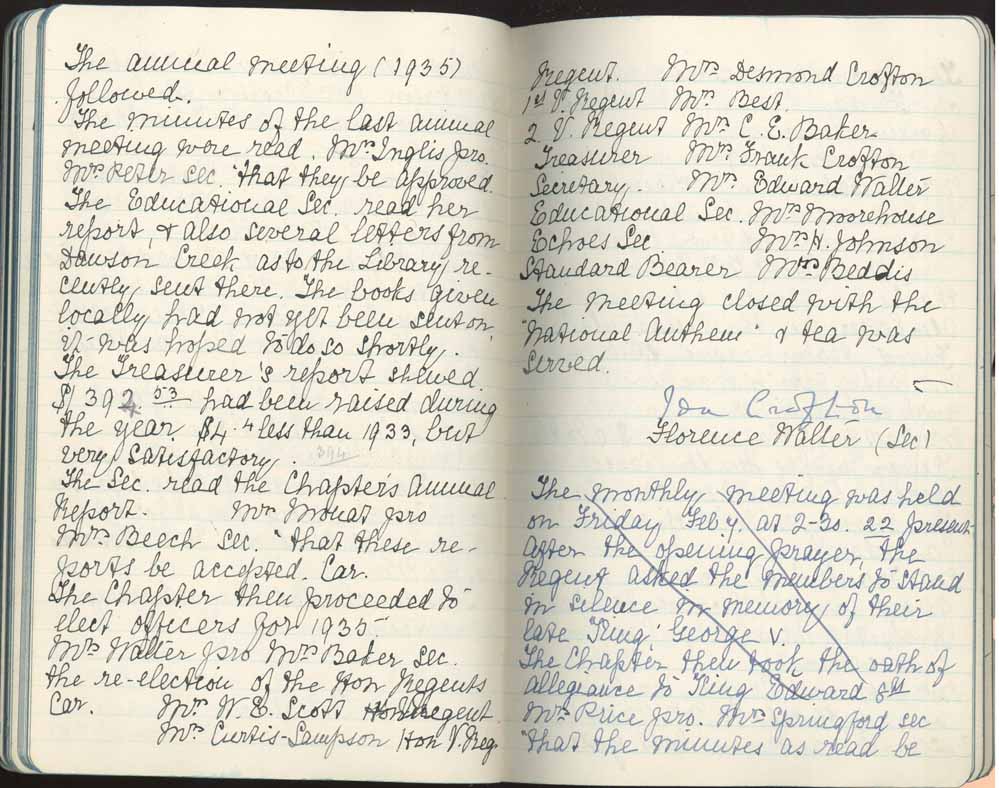 The annual meeting (1935)
followed.
The minutes of the last annual
meeting were read. Mrs Inglis pro.
Mrs Peter sec. "that they be approved.
The Educational Sec. read her
report, & also several letters from
Dawson Creek as to the Library re-
cently sent there. The books given
locally had not yet been sent on
it was hoped to do so shortly.
The Treasurer's report shewed
$ 392.53 had been raised during
the year. $4. less than 1933, but
very satisfactory.
394
The Sec. read the Chapter's Annual
Report. Mrs Mouat pro
Mrs Beech sec. "that these re-
ports be accepted. Car.
The Chapter then proceeded to
elect officers for 1935.
Mrs Walter pro Mrs Baker, sec.
the re-election of the Hon Regents
Car. Mrs W. E. Scott Hon Regent
Mrs Curtis-Sampson Hon V. Reg.
Regent. Mrs Desmond Crofton
1st V. Regent Mrs Best.
2 V. Regent Mrs C. E. Baker
Treasurer Mrs Frank Crofton
Secretary. Mrs Edward Walter
Educational Sec. Mrs Moorehouse
Echoes Sec Mrs H. Johnson
Standard Bearer Mrs Beddis
The meeting closed with the
"National Anthem" & tea was
served.
Ida Crofton
Florence Walter (Sec)
The monthly meeting was held
on Friday Feb 7. at 2-30. 22 present
After the opening prayer, the
Regent asked the members to stand
in silence in memory of their
late "King" George V.
The Chapter then took the oath of
allegiance to King Edward 8th
Mrs Price pro. Mrs Springford sec
"that the minutes as read be